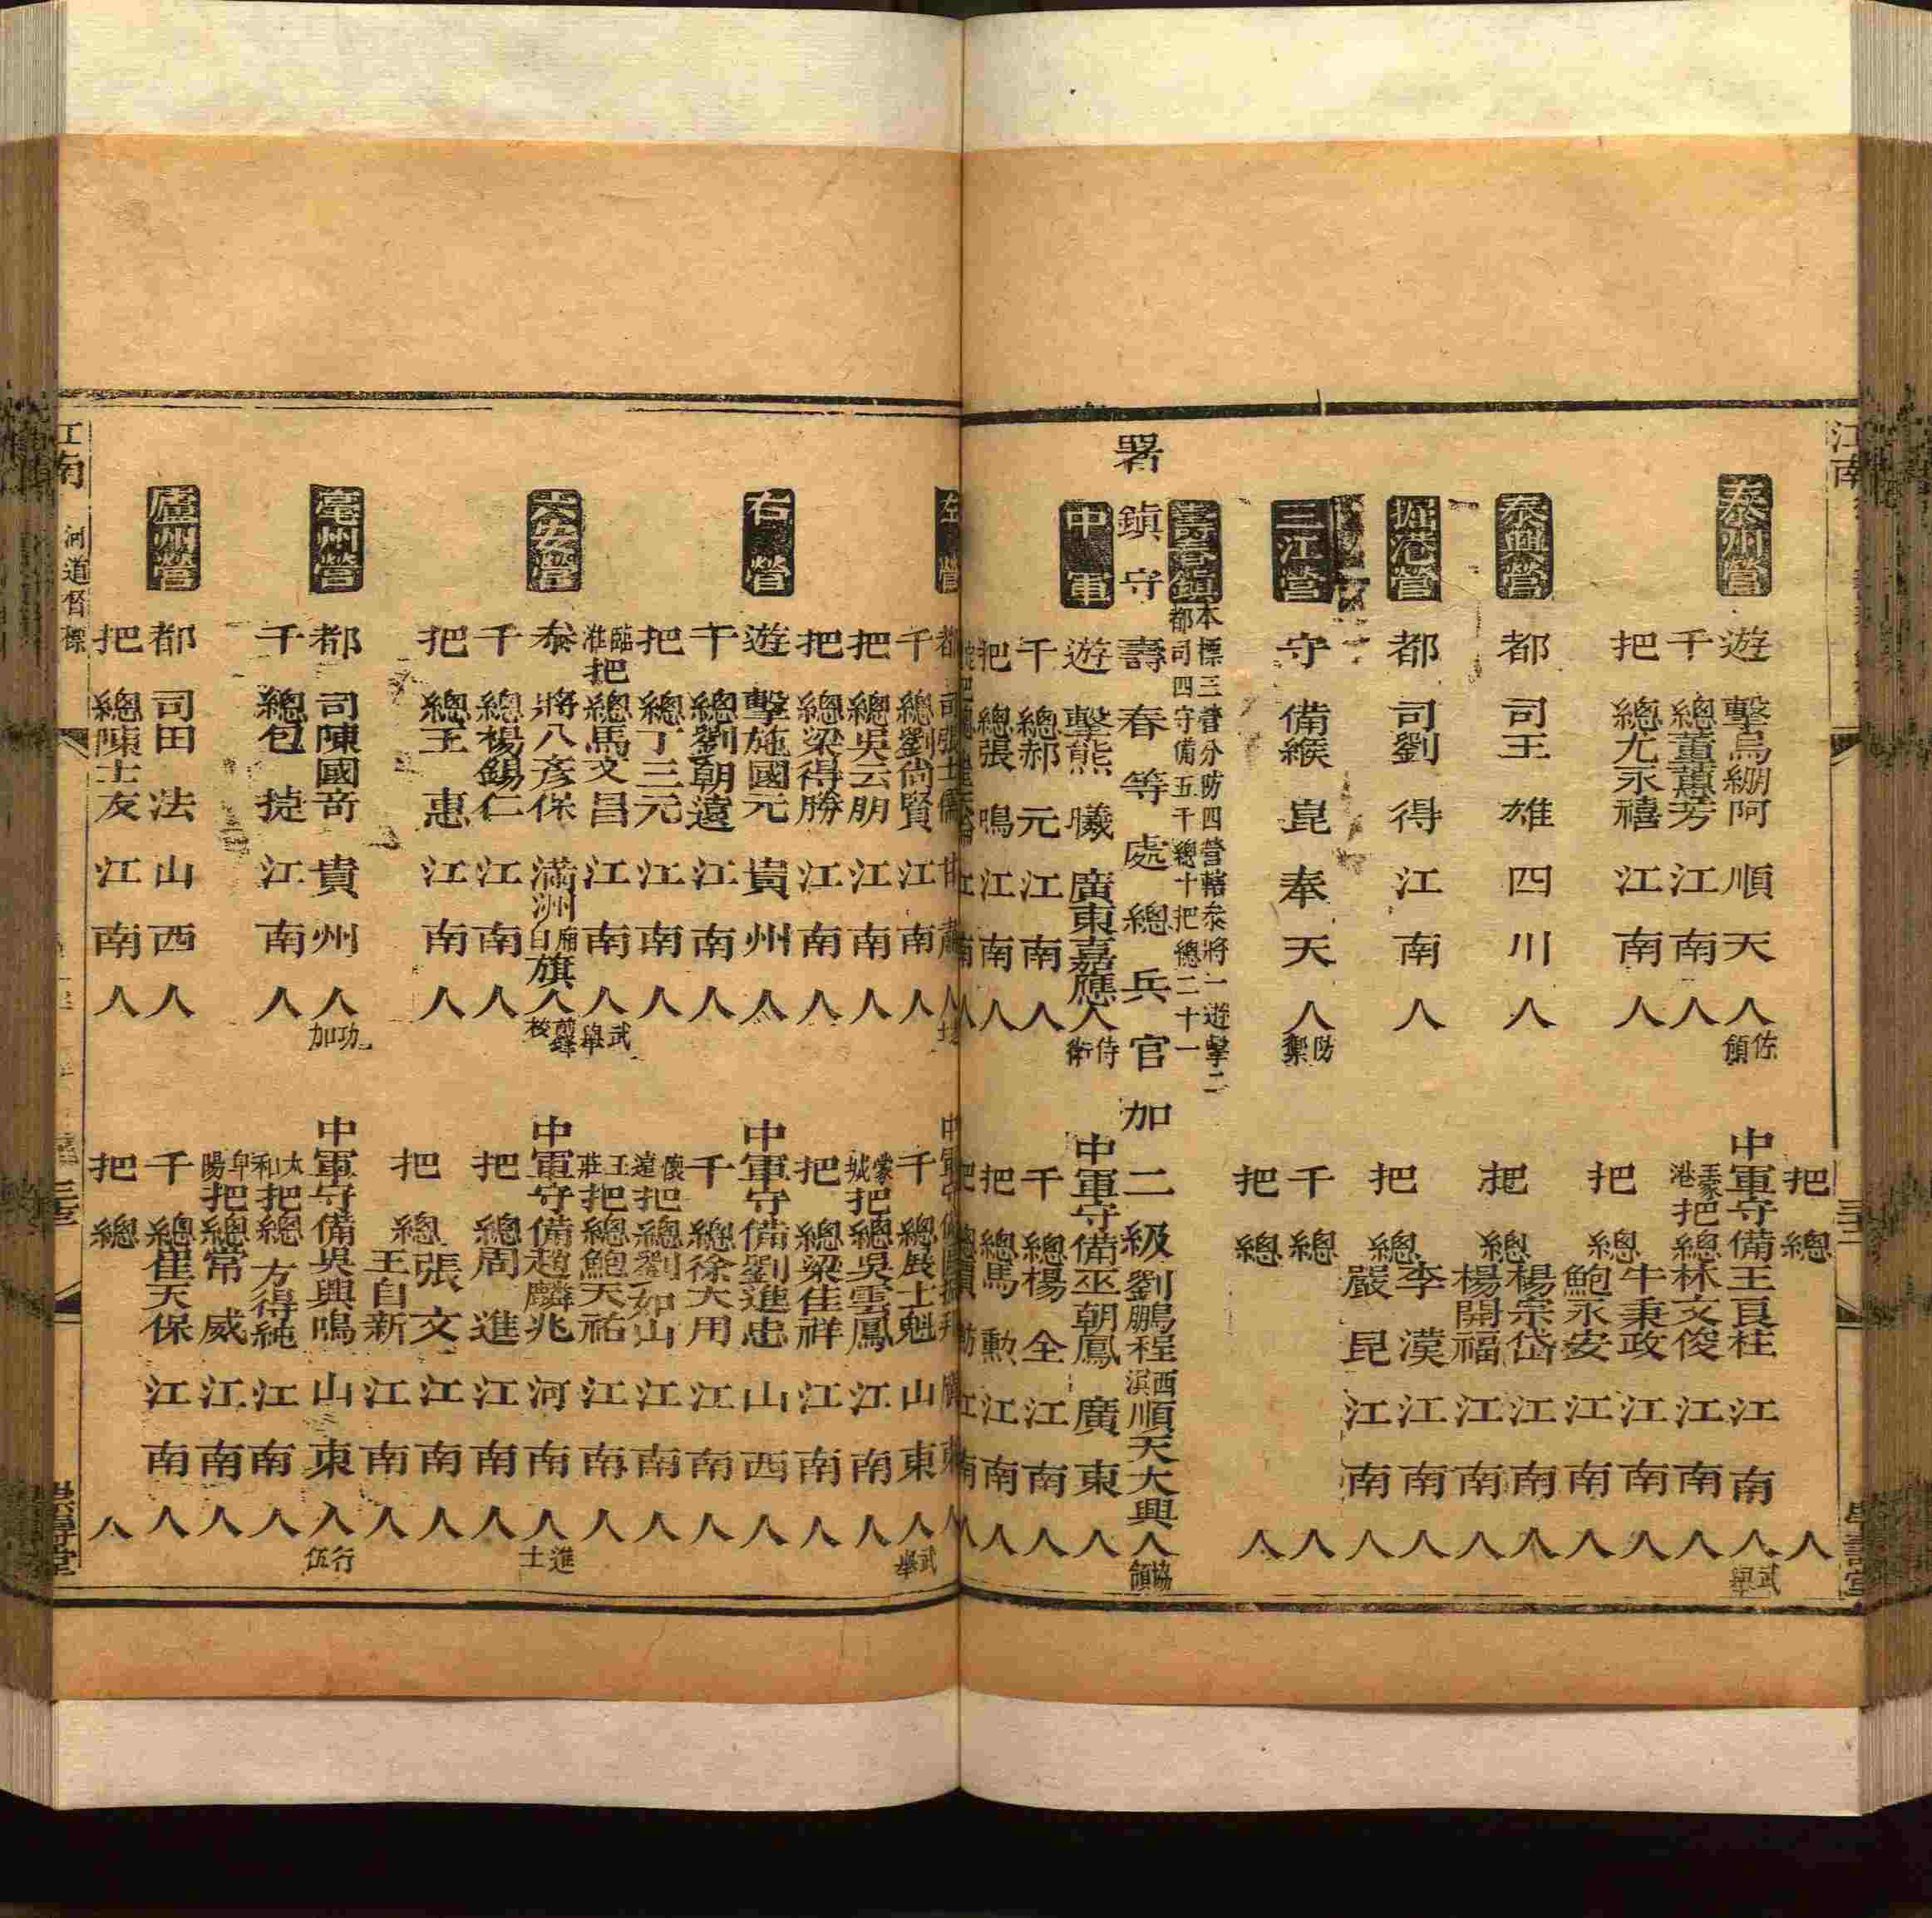 江南
泰州營
遊擊烏綳阿順天人佐領
千總董蕙芳江南人
把總尤永禧江南人
泰壩營
都司王雄四川人
掘港營
都司劉得江南人
三江營
守備緱崑奉天人防禦
把總人
中軍守備王良柱江南人武舉
把總林文俊江南人
把總牛秉政江南人
鮑永安江南人
把總楊宗岱江南人
楊開福江南人
把總李漢江南人
嚴昆江南人
千總人
把總人
壽春鎮
本標三營分防四營轄叅將一遊擊二
都司四守備五千總十把總二十一
署鎮守壽春等處總兵官加二級劉鵬程西濱順天大興人協領
中軍
遊擊熊曦廣東嘉應人侍衛
千總郝元江南人
把總張鳴江南人
中軍守備巫朝鳳廣東人
千總楊全江南人
把總馬勲江南人
左營
千總劉尙賢江南人
把總吳云朋江南人
把總梁得勝江南人
千總展士魁山東人武舉
蒙城把總吳雲鳳江南人
把總梁佳祥江南人
右營
遊擊施國元貴州人
千總劉朝遠江南人
把總丁三元江南人
臨淮把總馬文昌江南人武舉
中軍守備劉進忠山西人
千總徐大用江南人
懷遠把總劉如山江南人
王莊把總鮑天祐江南人
六安營
叅將八彥保滿洲廂白旗人前鋒校
千總楊錫仁江南人
把總王惠江南人
中軍守備趙麟兆河南人進士
把總周進江南人
把總張文江南人
王自新江南人
亳州營
都司陳國竒貴州人功加
千總包捷江南人
中軍守備吳興鳴山東人行伍
太和把總方得純江南人
阜陽把總常威江南人
廬州營
都司田法山西人
把總陳士友江南人
千總崔天保江南人
把總人
江南
河道督標